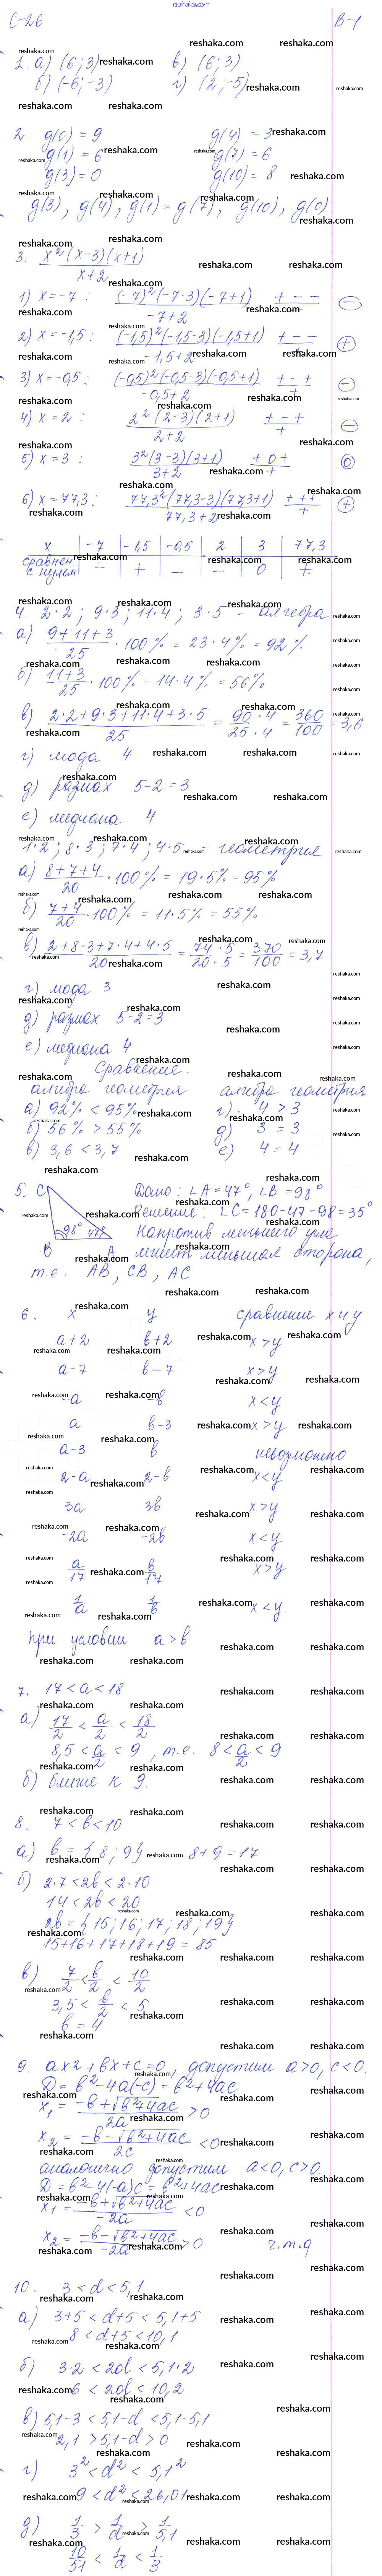 reshaka.com
С-26 В-1
1. а) (6; 3) в) (6; 3)
б) (-6; -3) г) (2; -5)
2. g(0) = 9 g(4) = 3
g(1) = 6 g(7) = 6
g(3) = 0 g(10) = 8
g(3), g(4), g(1) = g(7), g(10), g(0)
3. x²(x-3)(x+1) / x+2
1) x = -7 : (-7)²(-7-3)(-7+1) / -7+2 + - - / - (-)
2) x = -1,5 : (-1,5)²(-1,5-3)(-1,5+1) / -1,5+2 + - - / + (+)
3) x = -0,5 : (-0,5)²(-0,5-3)(-0,5+1) / -0,5+2 + - + / + (-)
4) x = 2 : 2²(2-3)(2+1) / 2+2 + - + / + (-)
5) x = 3 : 3²(3-3)(3+1) / 3+2 + 0 + / + (0)
6) x = 77,3 : 77,3²(77,3-3)(77,3+1) / 77,3+2 + + + / + (+)
x | -7 | -1,5 | -0,5 | 2 | 3 | 77,3
сравнен. с нулем | - | + | - | - | 0 | +
4. 2·2 ; 9·3 ; 11·4 ; 3·5 - алгебра
а) 9+11+3 / 25 · 100% = 23·4% = 92%
б) 11+3 / 25 · 100% = 14·4% = 56%
в) 2·2+9·3+11·4+3·5 / 25 = 90·4 / 25·4 = 360 / 100 = 3,6
г) мода 4
д) размах 5-2 = 3
е) медиана 4
1·2 ; 8·3 ; 7·4 ; 4·5 - геометрия
а) 8+7+4 / 20 · 100% = 19·5% = 95%
б) 7+4 / 20 · 100% = 11·5% = 55%
в) 2+8·3+7·4+4·5 / 20 = 74·5 / 20·5 = 370 / 100 = 3,7
г) мода 3
д) размах 5-2=3
е) медиана 4
Сравнение.
алгебра геометрия алгебра геометрия
а) 92% < 95% г) 4 > 3
б) 56% > 55% д) 3 = 3
в) 3,6 < 3,7 е) 4 = 4
5. C Дано: ∠A = 47°, ∠B = 98°
Решение: ∠C = 180-47-98 = 35°
98° 47° Напротив меньшего угла
B A лежит меньшая сторона,
т.е. AB, CB, AC
6. x y сравнение x и y
a+2 b+2 x > y
a-7 b-7 x > y
-a -b x < y
a b-3 x > y
a-3 b невозможно
2-a 2-b x < y
3a 3b x > y
-2a -2b x < y
a/17 b/17 x > y
1/a 1/b x < y
при условии a > b
7. 17 < a < 18
а) 17/2 < a/2 < 18/2
8,5 < a/2 < 9, т.е. 8 < a/2 < 9
б) ближе к 9.
8. 7 < b < 10
а) b = {8; 9} 8+9 = 17
б) 2·7 < 2b < 2·10
14 < 2b < 20
2b = {15; 16; 17; 18; 19}
15+16+17+18+19 = 85
в) 7/2 < b/2 < 10/2
3,5 < b/2 < 5
b = 4
9. ax2 + bx + c = 0, допустим a>0, c<0.
D = b² - 4a(-c) = b² + 4ac
x₁ = -b+√b²+4ac / 2a > 0
x₂ = -b-√b²+4ac / 2c < 0
аналогично допустим a<0, c>0.
D = b² - 4(-a)c = b² + 4ac
x₁ = -b+√b²+4ac / -2a < 0
x₂ = -b-√b²+4ac / -2a > 0 ч.т.д
10. 3 < d < 5,1
а) 3+5 < d+5 < 5,1+5
8 < d+5 < 10,1
б) 3·2 < 2d < 5,1·2
6 < 2d < 10,2
в) 5,1-3 < 5,1-d < 5,1-5,1
2,1 > 5,1-d > 0
г) 3² < d² < 5,1²
9 < d² < 26,01
д) 1/3 > 1/d > 1/5,1
10/51 < 1/d < 1/3